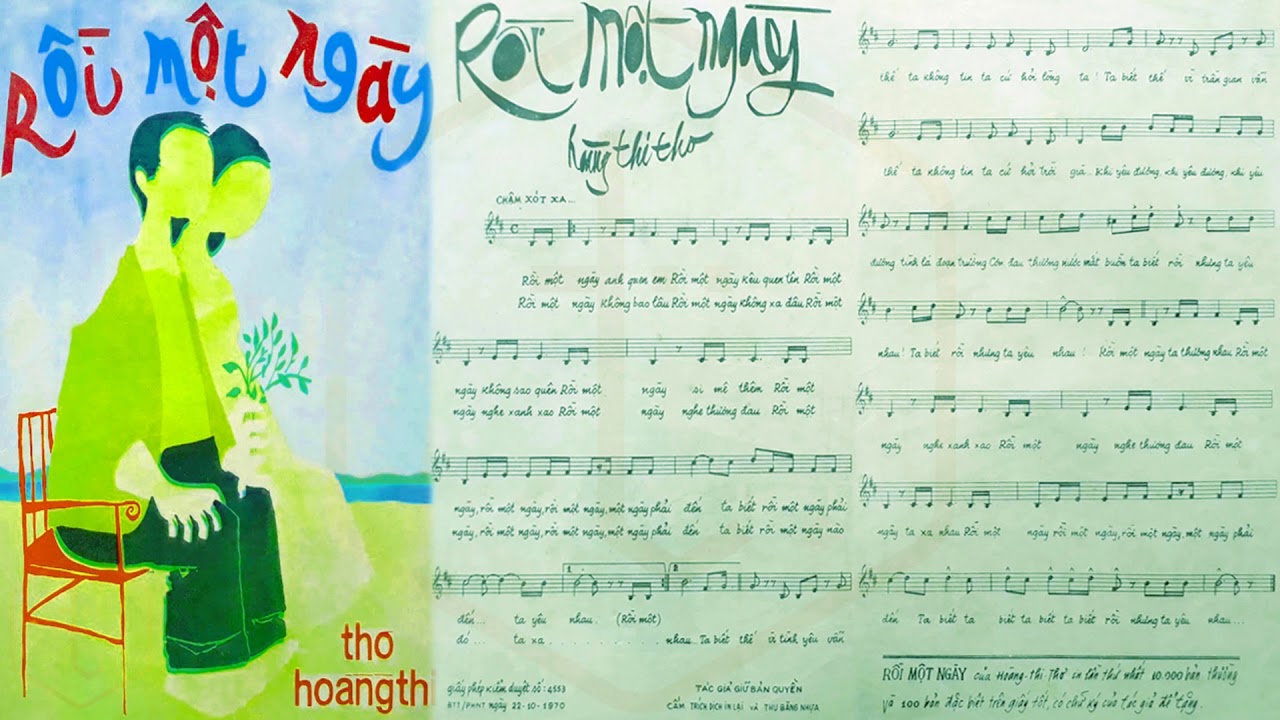 Rồi một ngày
thơ
hoàngthi
Rồi một ngày
hoàng thi thơ
CHẬM XÓT XA...
Rồi một ngày anh quen em Rồi một ngày kêu quen tên Rồi một
Rồi một ngày không bao lâu Rồi một ngày không xa đâu Rồi một
ngày không sao quên Rồi một ngày si mê thêm Rồi một
ngày nghe xanh xao Rồi một ngày nghe thương đau Rồi một
ngày, rồi một ngày, rồi một ngày, một ngày phải đến ta biết rồi một ngày phải
ngày, rồi một ngày, rồi một ngày, một ngày phải đến ta biết rồi một ngày nào
1.
2
đến... ta yêu nhau. (Rồi một)
đó... ta xa... nhau... Ta biết thế vì tình yêu vẫn
giấy phép kiểm duyệt số: 4553
BTT/PHNT ngày 22-10-1970
TÁC GIẢ GIỮ BẢN QUYỀN
CẤM TRÍCH DỊCH IN LẠI VÀ THU BĂNG NHỰA
thế ta không tin ta cứ hỏi lòng ta! Ta biết thế vì trần gian vẫn
thế ta không tin ta cứ hỏi trời già... Khi yêu đương, khi yêu đương, khi yêu
đương tình là đoạn trường Cơn đau thương nước mắt buồn ta biết rồi nhưng ta yêu
nhau! Ta biết rồi nhưng ta yêu nhau! Rồi một ngày ta thương nhau Rồi một
ngày nghe xanh xao Rồi một ngày nghe thương đau Rồi một
ngày ta xa nhau Rồi một ngày rồi một ngày, rồi một ngày, một ngày phải
đến Ta biết ta biết ta biết ta biết rồi nhưng ta yêu nhau...
RỒI MỘT NGÀY của Hoàng-Thi-Thơ in lần thứ nhất 10.000 bản thường
và 100 bản đặc biệt trên giấy tốt, có chữ ký của tác giả đề tặng.